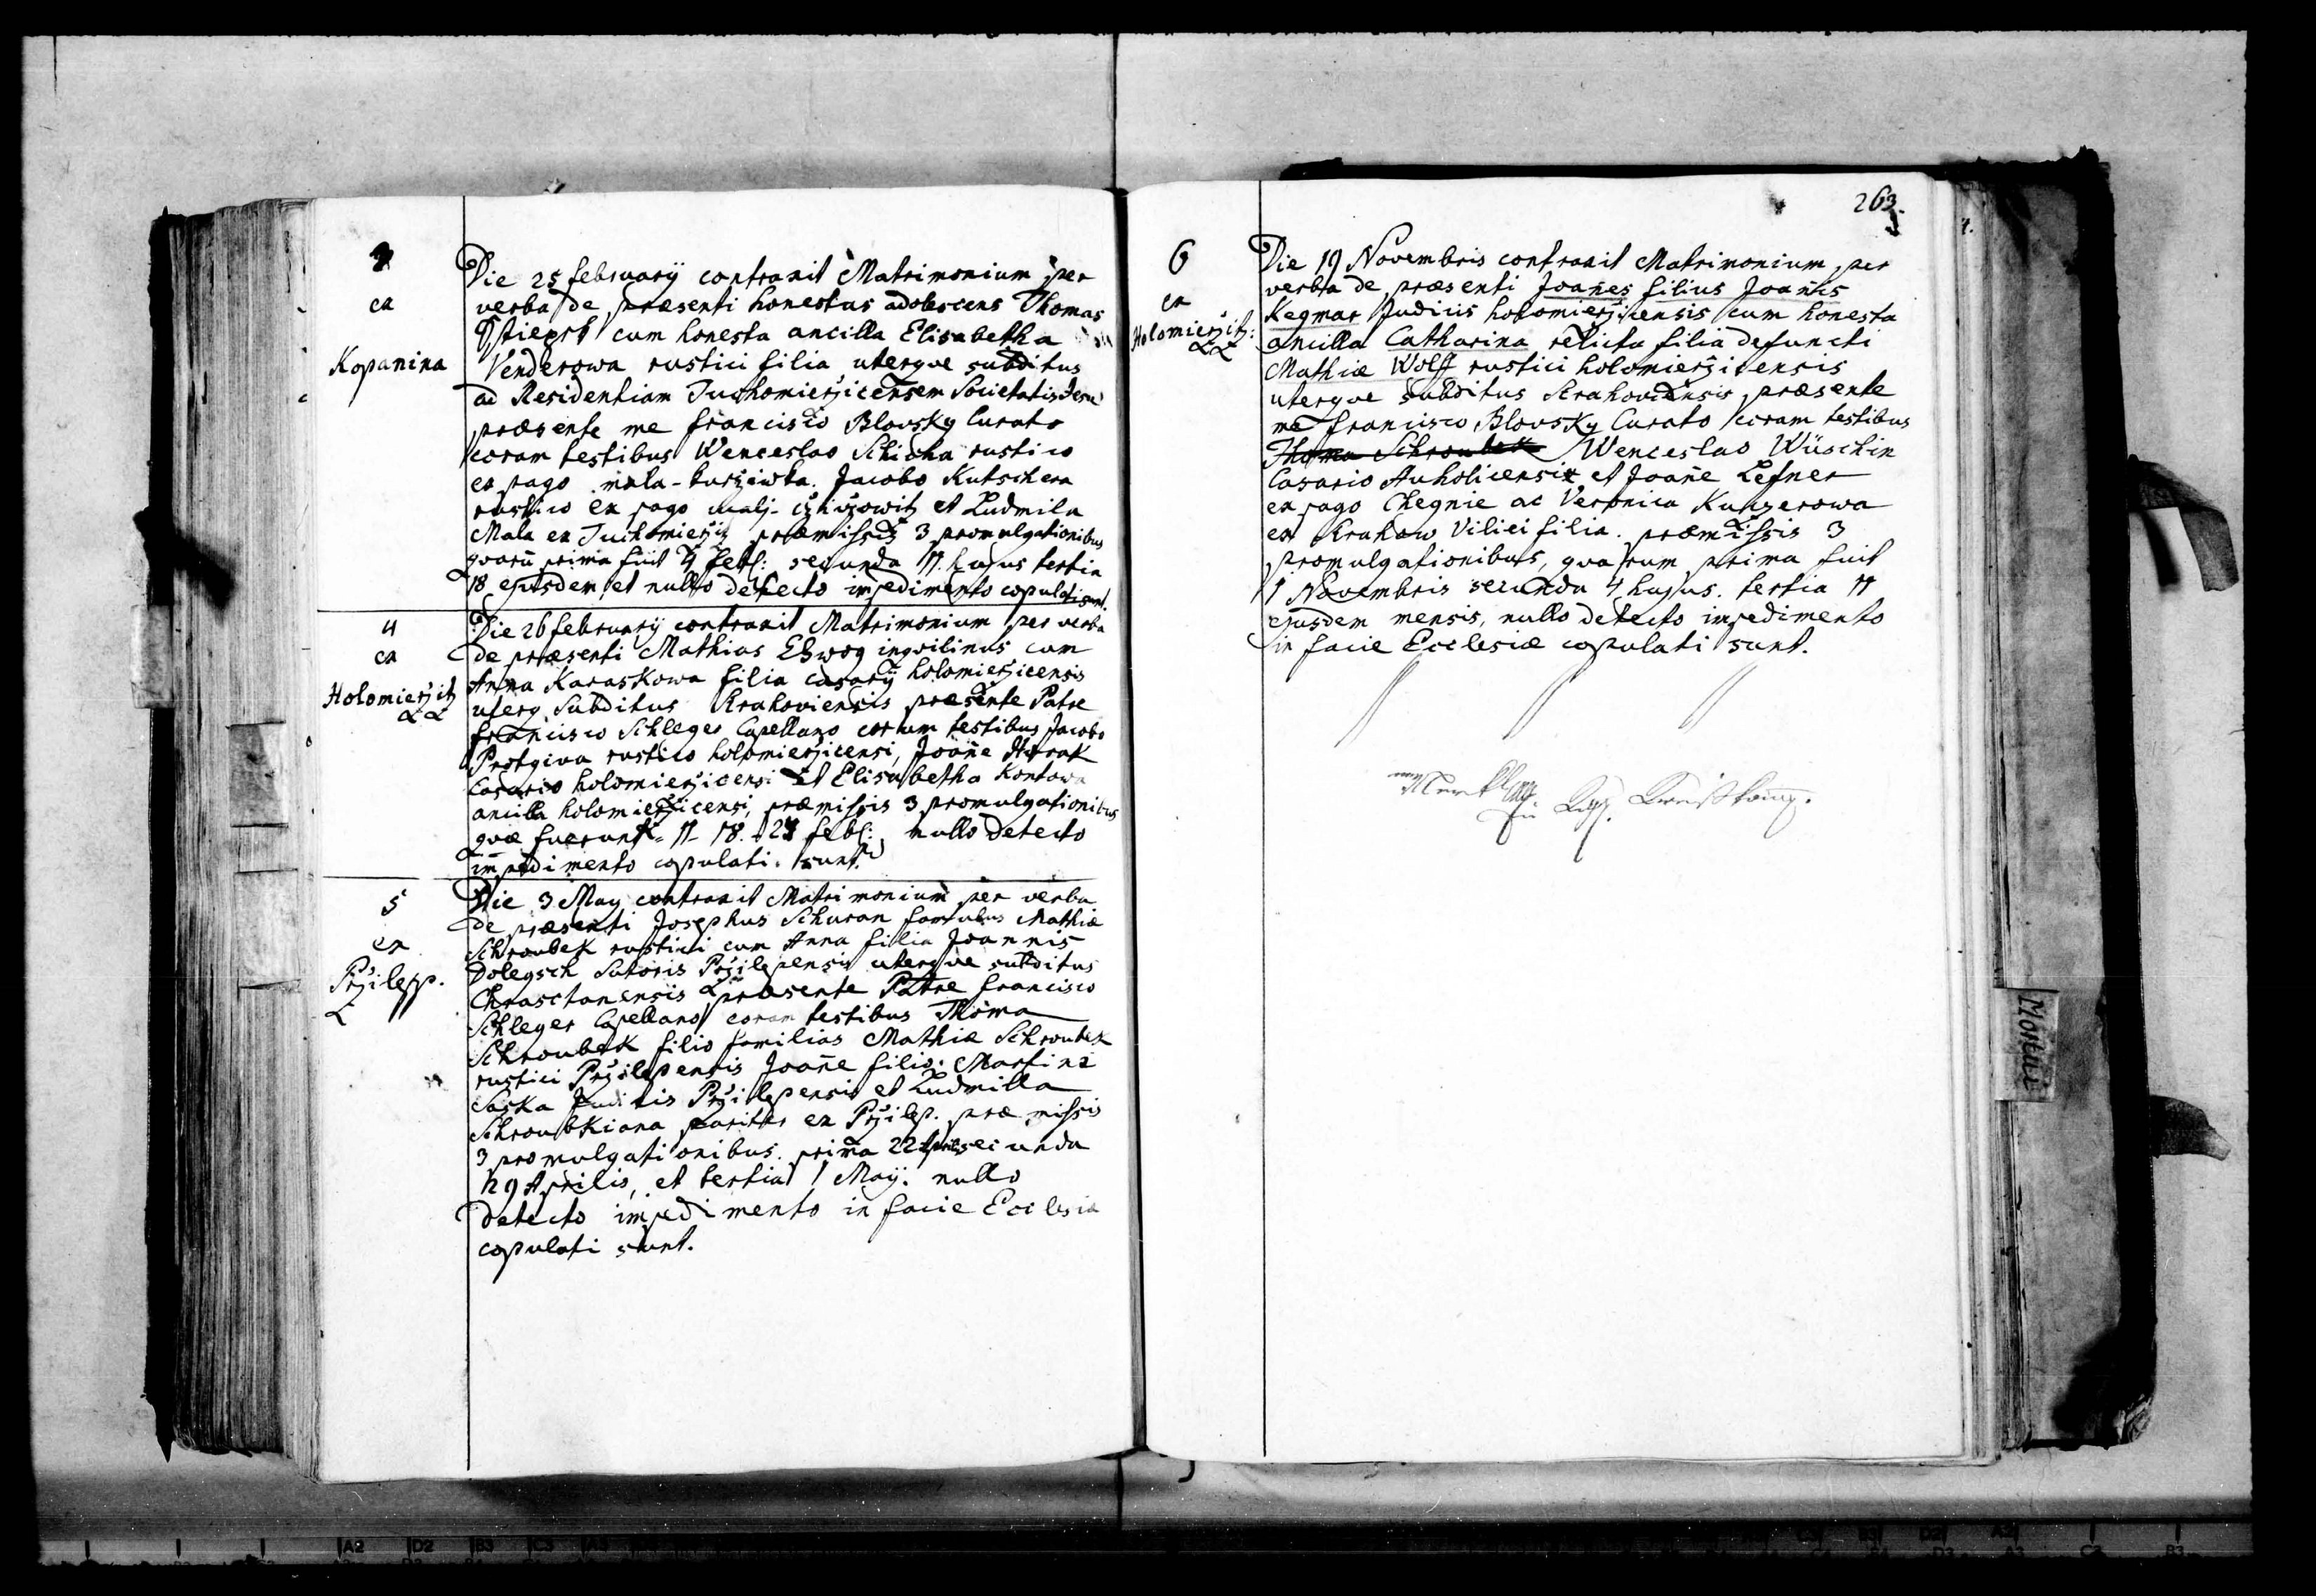 3
ex
Kopanina
Die 25 februarÿ contraxit Matrimonium per
verba de præsenti honestus adolescens Thomas
cum honesta ancilla Elisabetha
Venderowa rustici filia, uterque subditus
ad Residentiam Tuchomierzicensem Societatis Jesu
præsente me francisco Blovsky Curato
coram testibus Wenceslao Schicha rustico
ex pago mala-kurziwka. Jacobo Kutschera
rustico ex pago malj- et Ludmila
Mala ex Tuchomierziz præmissis 3 promulgationibus
quarū prima fuit 4 feb: secunda 11 hujus tertia
18 ejusdem et nullo detecto impedimento copulati sunt.
4
ex
Holomierzitz
Die 26 february contraxit Matrimonium per verba
de præsenti Mathias inquilinus cum
Anna Karaskowa filia casarÿ holomierzicensis
uterq subditus Krahoviensis præsente Patre
francisco Schleger Capellano coram testibus Jacobo
Protgiva rustico holomierzicensi, Joañe Horak
Casario holomierzicensi et Elisabetha Kontowa
ancilla holomierzicensi, præmissis 3 promulgationibus
quæ fuerunt 11- 18. feb: nullo detecto
impedimento copulati sunt.
5
ex
Przilepp.
Die 3 May contraxit Matrimonium per verba
de præsenti Josephus Schuran famulus Mathiæ
Schroubek rustici cum Anna filia Joannis
Dolegsch Sutoris Przilepensis uterque subditus
Chrasctanensis præsente Patre francisco
Schleger Capellano coram testibus Thoma
Schroubek filio familias Mathiæ Schroubek
rustici Przilepensis Joañe filio Martini
Saska Judicis Przilepensis et Ludmilla
Schroubkiana pariter ex Przilep. præmissis
3 promulgationibus. prima 22 Aprilis secunda
29 Aprilis, et tertia 1 Maÿ. nullo
detecto impedimento in facie Ecclesiæ
copulati sunt.
263.
6
ex
Holomierzitz:
Die 19 Novembris contraxit Matrimonium per
verba de præsenti Joañes filius Joañis
Kegmar Judicis holomierzicensis cum honesta
ancilla Catharina relicta filia defuncti
Mathiæ Wolff rustici holomierzicensis
uterque subditus Krahoviensis præsente
me francisco Blovsky Curato coram testibus
Thoma Schroubek Wenceslao Wüschin
Casario Auholicensi et Joañe Lefner
ex pago Chegnie ac Veronica Kunzerowa
ex Krahow Vilici filia. præmissis 3
promulgationibus, quarum prima fuit
1 Novembris secunda 4 hujus. tertia 11
ejusdem mensis, nullo detecto impedimento
in facie Ecclesiæ copulati sunt.
Mortui